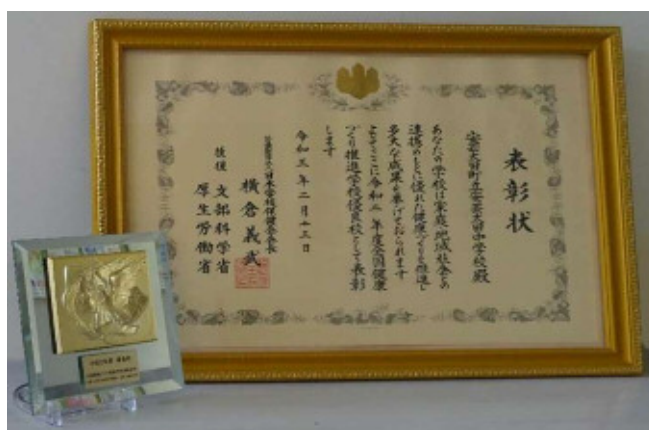 表彰状
安芸太田町立安芸太田中学校殿
あなたの学校は家庭地域社会との
連携のもとに優れた健康づくりを推進し
多大な成果を挙げておられます
よってここに令和二年度全国健康
づくり推進学校優良校として表彰
します
令和三年二月十三日
日本学校保健会会長
横倉義武
後援 文部科学省
厚生労働省